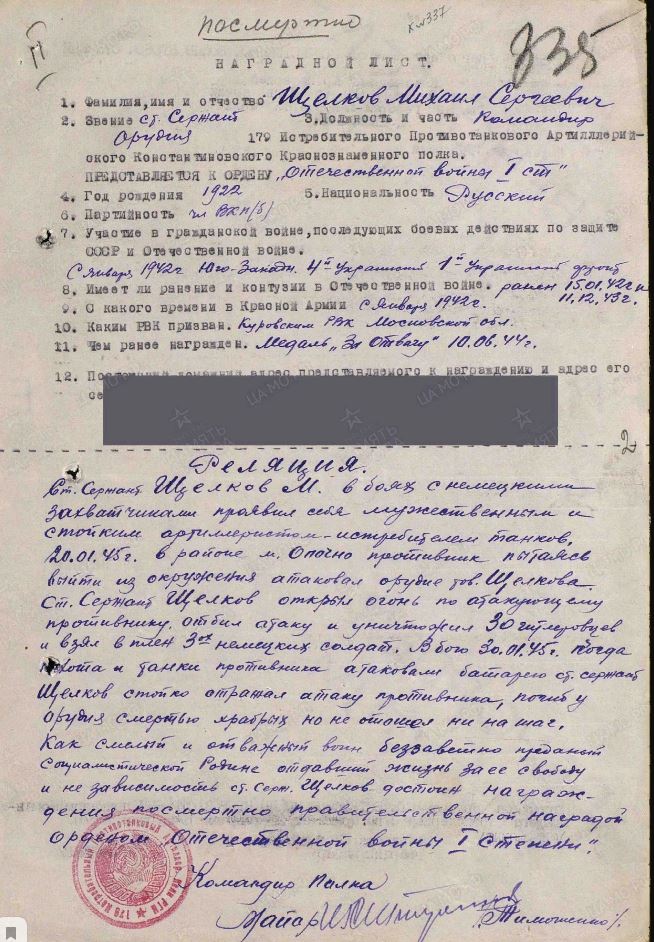 посмертно
337
335
НАГРАДНОЙ ЛИСТ.
1. Фамилия,имя и отчество Щелков Михаил Сергеевич
2. Звание ст. Сержант 3.Должность и часть Командир
орудия 179 Истребительного Противотанкового Артиллерий-
ского Константиновского Краснознаменного полка.
ПРЕДСТАВЛЯЕТСЯ К ОРДЕНУ „Отечественной войны I ст"
4. Год рождения 1922 5.Национальность Русский
6. Партийность чл ВКП(б)
7. Участие в гражданской войне,последующих боевых действиях по защите
СССР и Отечественной войне.
С Января 1942г Юго-Западн. 4й Украинский 1й Украинский фронт
8. Имеет ли ранение и контузии в Отечественной войне. ранен 15.01.42г и
11.12.43г.
9. С какого времени в Красной Армии с Января 1942г.
10. Каким РВК призван. Куровским РВК Московской обл.
11. Чем ранее награжден. Медаль „За Отвагу" 10.06.44г.
12. домашний адрес представляемого к награждению и адрес его
се
2
Реляция.
Ст. Сержант Щелков М. в боях с немецкими
захватчиками проявил себя мужественным и
стойким артиллеристом-истребителем танков.
20.01.45г. в районе м. Опочно противник пытаясь
выйти из окружения атаковал орудие тов. Щелкова.
Ст. Сержант Щелков открыл огонь по атакующему
противнику, отбил атаку и уничтожил 30 гитлеровцев
и взял в плен 3ох немецких солдат. В бою 30.01.45г. когда
пехота и танки противника атаковали батарею ст. сержант
Щелков стойко отражал атаку противника, погиб у
орудия смертью храбрых но не отошол ни на шаг.
Как смелый и отважный воин беззаветно преданый
социалистической Родине отдавший жизнь за ее свободу
и не зависимость ст. Серж. Щелков достоин награж-
дения посмертно правительственной наградой
орденом „Отечественной войны I Степени".
Командир Полка
Майор (Тимошенко).